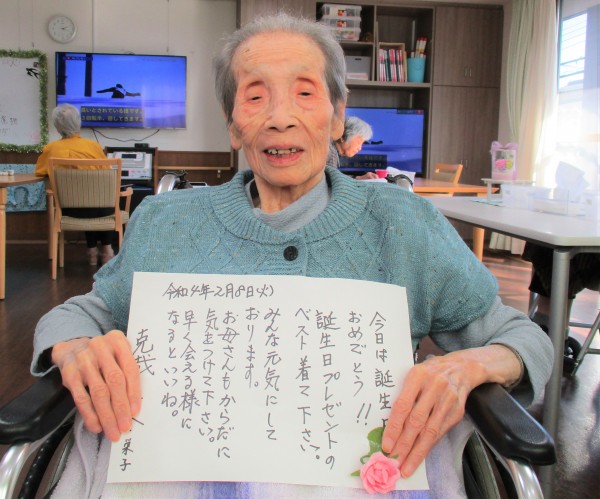 令和4年2月8日(火)
今日は誕生日
おめでとう!!
誕生日プレゼントの
ベスト着て下さい。
みんな元気にして
おります。
お母さんもからだに
気をつけて下さい。
早く会える様に
なるといいね。
克哉
栄子